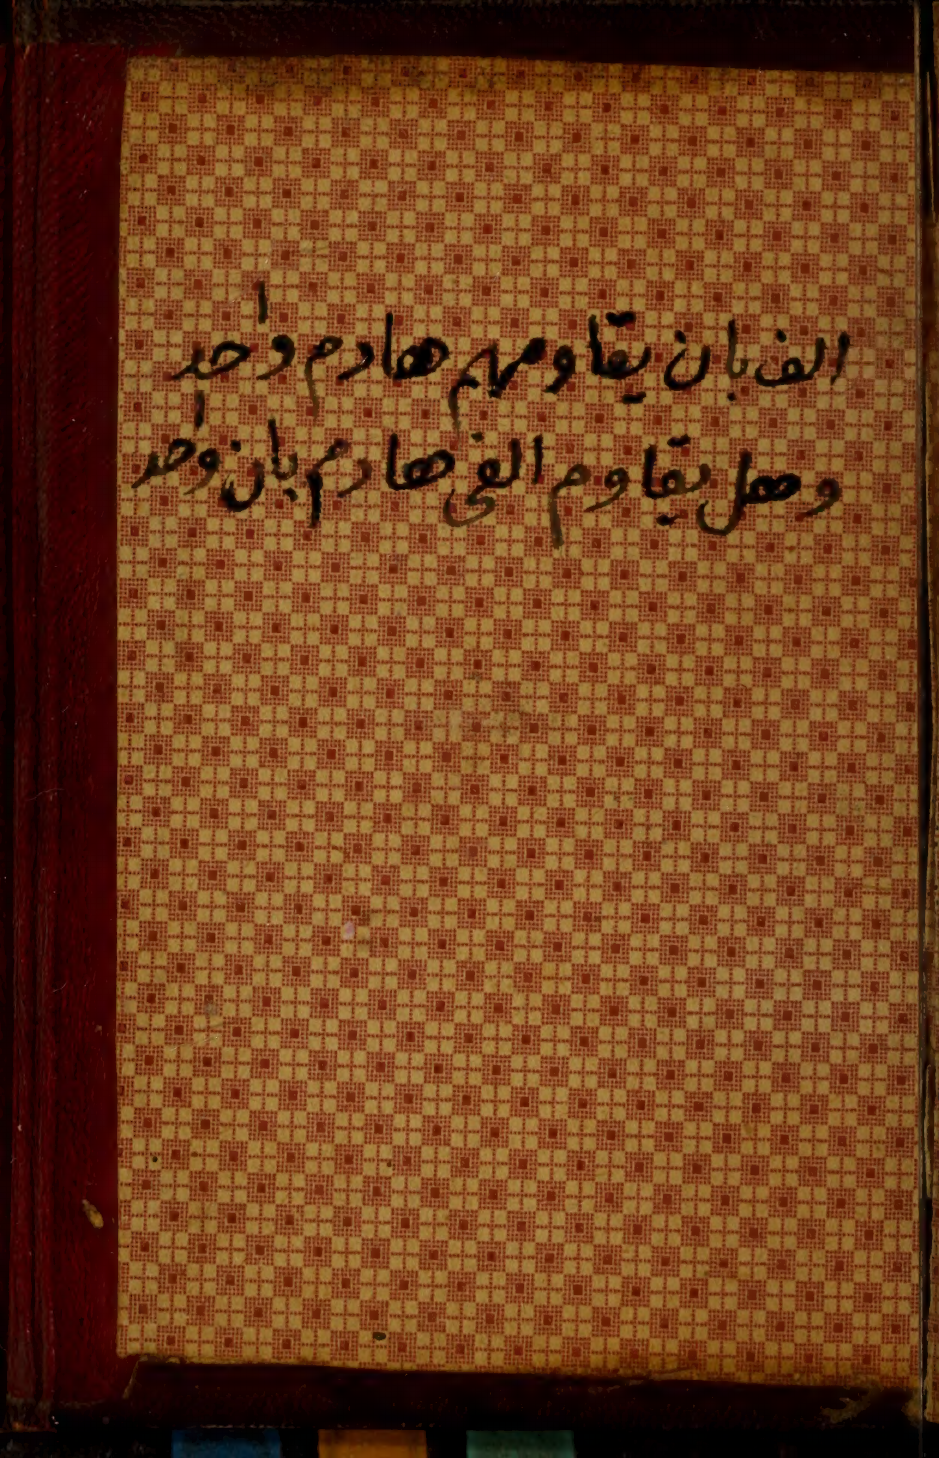 الف بان يقاومهم هادم واحد
وهل يقاوم الفى هادم بان واحد